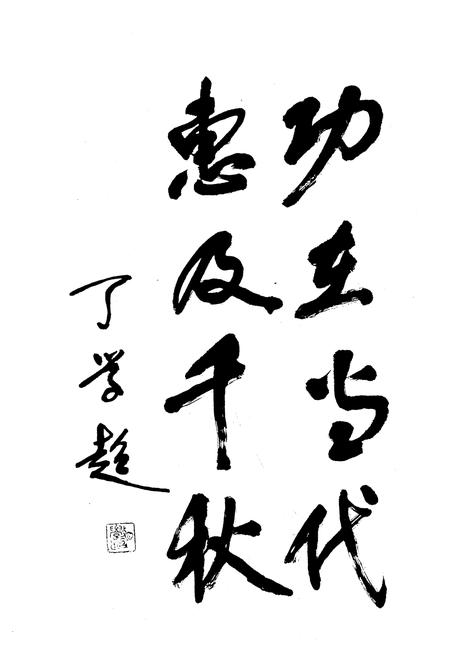 功在当代
惠及千秋
丁学超